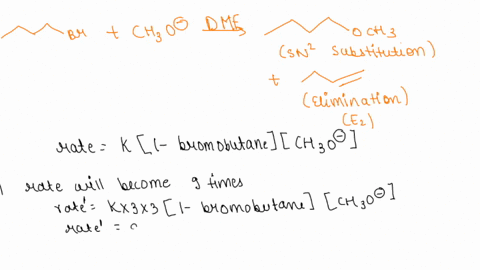 Br + CH3O⊖ DME OCH3
(SN2 substitution)
+
(Elimination)
(E2)
rate = K [1- bromobutane] [CH3O⊖]
rate will become 9 times
rate' = K×3×3 [1- bromobutane] [CH3O⊖]
rate' =